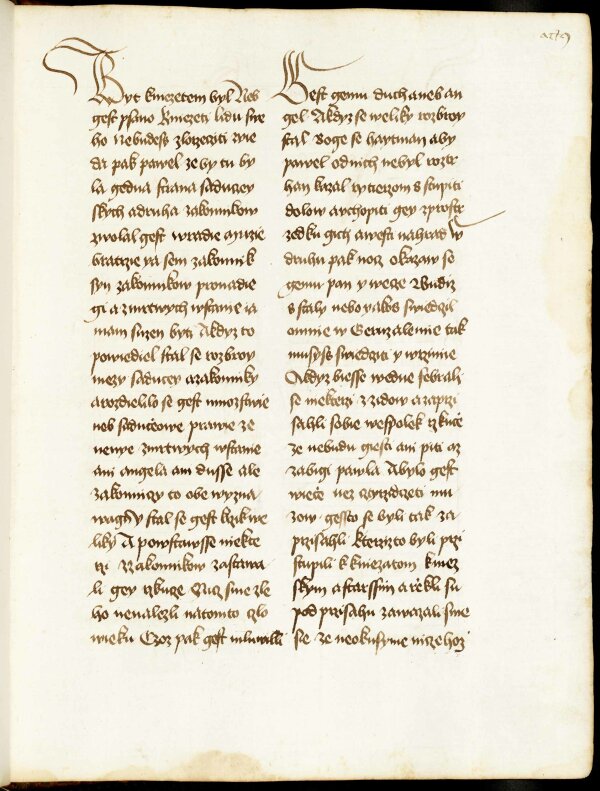 Byt kniezetem byl Neb
gest psano Kniezeti lidu swe
ho nebudess zlorzeciti wie
da pak pawel ze by tu by
la gedna strana saducey
skych a druha zakonnikow
zwolal gest w radie muzie
bratrzie ya sem zakonnik
syn zakonnikow pro nadie
gi a zmrtwych wstanie ia
mam suzen byti A kdyz to
powiediel stal se rozbroy
mezy saducey a zakonniky
a rozdielilo se gest mnozstwie
neb saduceowe prawie ze
nenye zmrtwych wstanie
ani angela ani dusse ale
zakonniczy to obe wyzna
wagy y stal se gest krzik we
liky A powstawsse niekte
rzi z zakonnikow zastawa
li gey rzkuce Nicz sme zle
ho nenalezli na tomto czlo
wieku Czoz pak gest mluwilli
Gest gemu duch aneb an
gel A kdyz se weliky rozbroy
stal Boge se haytman aby
pawel od nich nebyl roztr
han kazal rytierzom sstupiti
dolow a wchopiti gey z prostr
zedku gich a westi na hrad W
druhu pak nocz okazaw se
gemu pan y wece Budiz
sstaly nebo yakos swiedczil
o mnie w Geruzalemie tak
musyss swiedcziti y w rzimie
A kdyz biesse w edne sebrali
se niekterzi z zidow a zaprzi
sahli sobie wespolek rzkuce
ze nebudu giesti ani piti az
zabigi pawla A bylo gest
wiece nez cztyrzidczeti mu
zow gessto se byli tak za
przisahli kterzizto byli przi
stupili k kniezatom kniez
skym a starssim a rekli su
pod przisahu zawazali sme
se ze neokusyme niczehoz